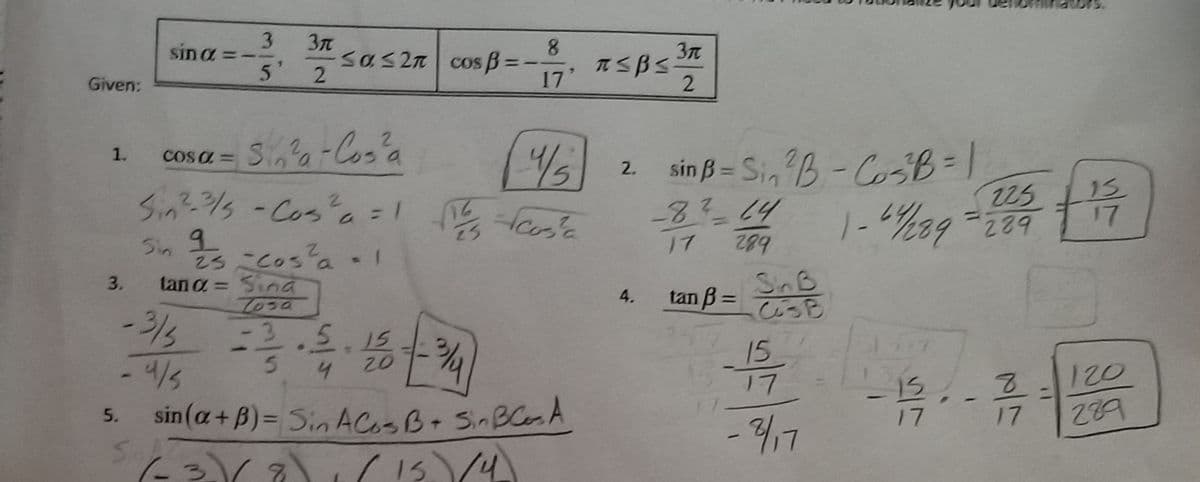 Given: sin α = -3/5, 3π/2 ≤ α ≤ 2π | cos β = -8/17, π ≤ β ≤ 3π/2
1. cos α = Sin²a - Cos²a 4/5
Sin² -3/5 - Cos²a = 1 √16/25 √Cos²a
Sin 9/25 - Cos²a = 1
2. sin β = Sin²B - Cos²B = 1
-8²/17 = 64/289 1 - 64/289 = 225/289 15/17
3. tan α = Sina/Cosa
-3/5 / -4/5 = -3/5 · 5/4 = 15/20 = -3/4
4. tan β = SinB/CosB
15/17 / -8/17 -15/17 · -8/17 = 120/289
5. sin(α + β) = Sin A Cos B + Sin B Cos A
(-3)(8) (15)(4)